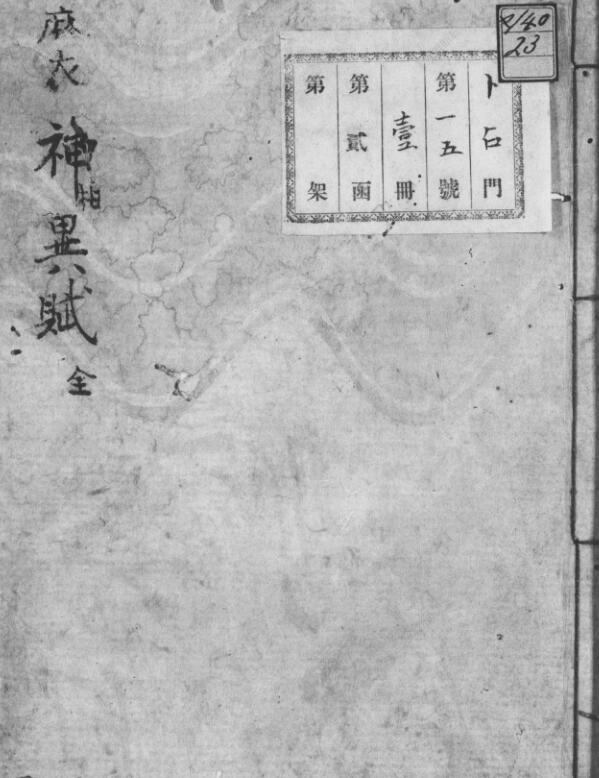 卜占門
第一五號
壹冊
第貳函
第架
2140
23
麻衣神相異賦全